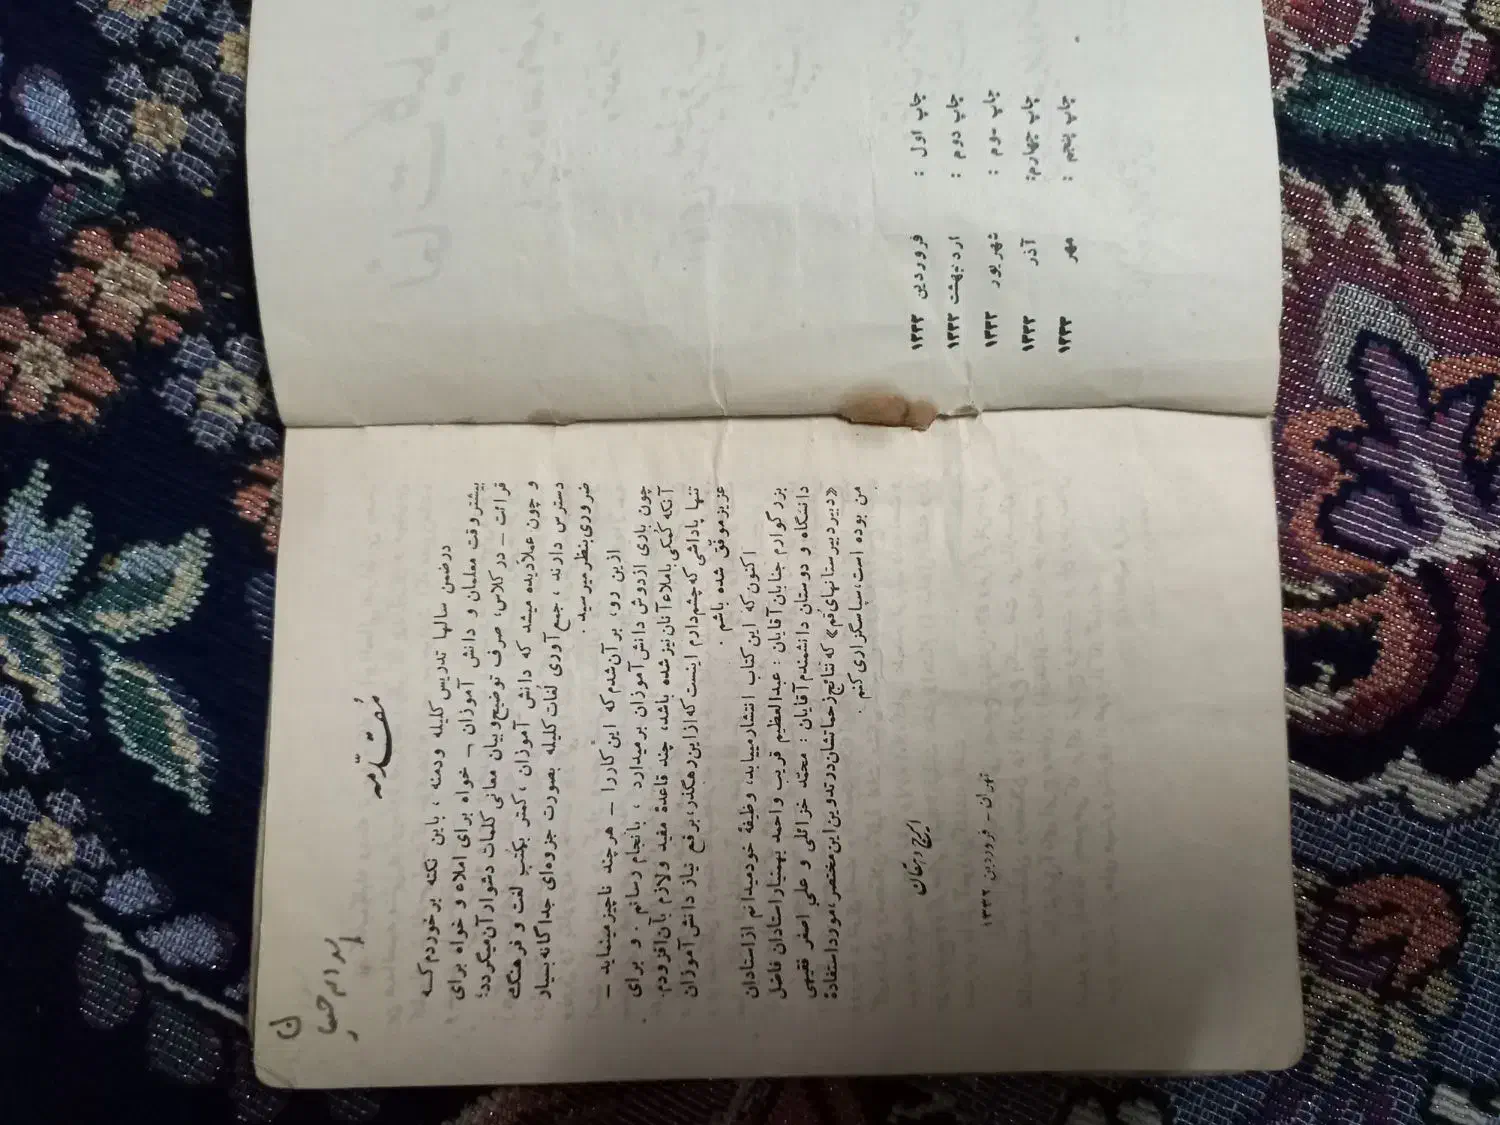 چاپ اول : فروردین ۱۳۳۳
چاپ دوم : اردیبهشت ۱۳۳۳
چاپ سوم : شهریور ۱۳۳۳
چاپ چهارم: آذر ۱۳۳۳
چاپ پنجم : مهر ۱۳۳۴
مقدّمه
درضمن سالها تدریس کلیله ودمنه ، باین نکته برخوردم کـه
بیشتر وقت معلمان و دانش آموزان ـ خواه برای املاء و خواه برای
قرائت ـ در کلاس، صرف توضیح وبیان معانی کلمات دشوار آن میگردد؛
و چون عملاً دیده میشد که دانش آموزان ، کمتر بکتب لغت و فرهنگ
دسترس دارند ، جمع آوری لغات کلیله بصورت جزوه‌ای جداگانه بسیار
ضروری بنظر میرسید .
ازین رو، بر آن شدم که این کار را ـ هر چند ناچیز مینماید ـ
چون باری از دوش دانش آموزان برمیدارد ، بانجام رسانم . و برای
آنکه کمکی باملاء آنان نیز شده باشد، چند قاعدهٔ مفید ولازم بآن افزودم.
تنها پاداشی که چشم دارم اینست که از این رهگذر، برفع نیاز دانش آموزان
عزیز موفّق شده باشم .
اکنون که این کتاب انتشار مییابد، وظیفهٔ خود میدانم از استادان
بزرگوارم جنابان آقایان : عبدالعظیم قریب واحمد بهمنیار استادان فاضل
دانشگاه و دوستان دانشمندم آقایان : محمّد خزائلی و علی اصغر فقیهی
«دبیر دبیرستانهای قم» که نتایج زحماتشان در تدوین این مختصر، مورد استفادهٔ
من بوده است، سپاسگزاری کنم .
ایرج دهقان
تهران ـ فروردین ۱۳۳۳